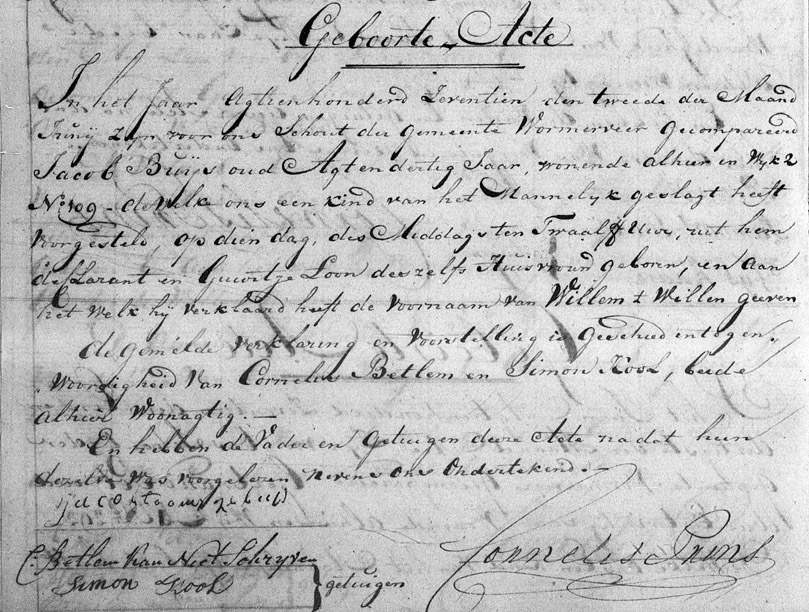 Geboorte-Acte
In het Jaar Agtienhonderd Zeventien den tweede der Maand
Junij zijn voor ons Schout der gemeente Wormerveer Gecompareerd
Jacob Buijs oud Agt en dertig Jaar, wonende alhier in Wijk 2
No 109 - dewelk ons een kind van het Mannelijk geslagt heeft
voorgesteld, op dien dag, des Middags ten Twaalf Uure, uit hem
declarant en Guurtje Loon deszelfs Huisvrouw geboren, en aan
het welk hij verklaard heeft de voornaam van Willem te Willen geeven
de gemelde verklaring en voorstelling is Geschied in tegen-
woordigheid van Cornelis Betlem en Simon Kool, beide
alhier Woonagtig. —
En hebben de Vader en Getuigen deeze Acte na dat hun
dezelve was voorgelezen nevens ons Ondertekend. —
C. Betlem Kan Niet Schryven
Simon Kool } getuigen
Cornelis Prins